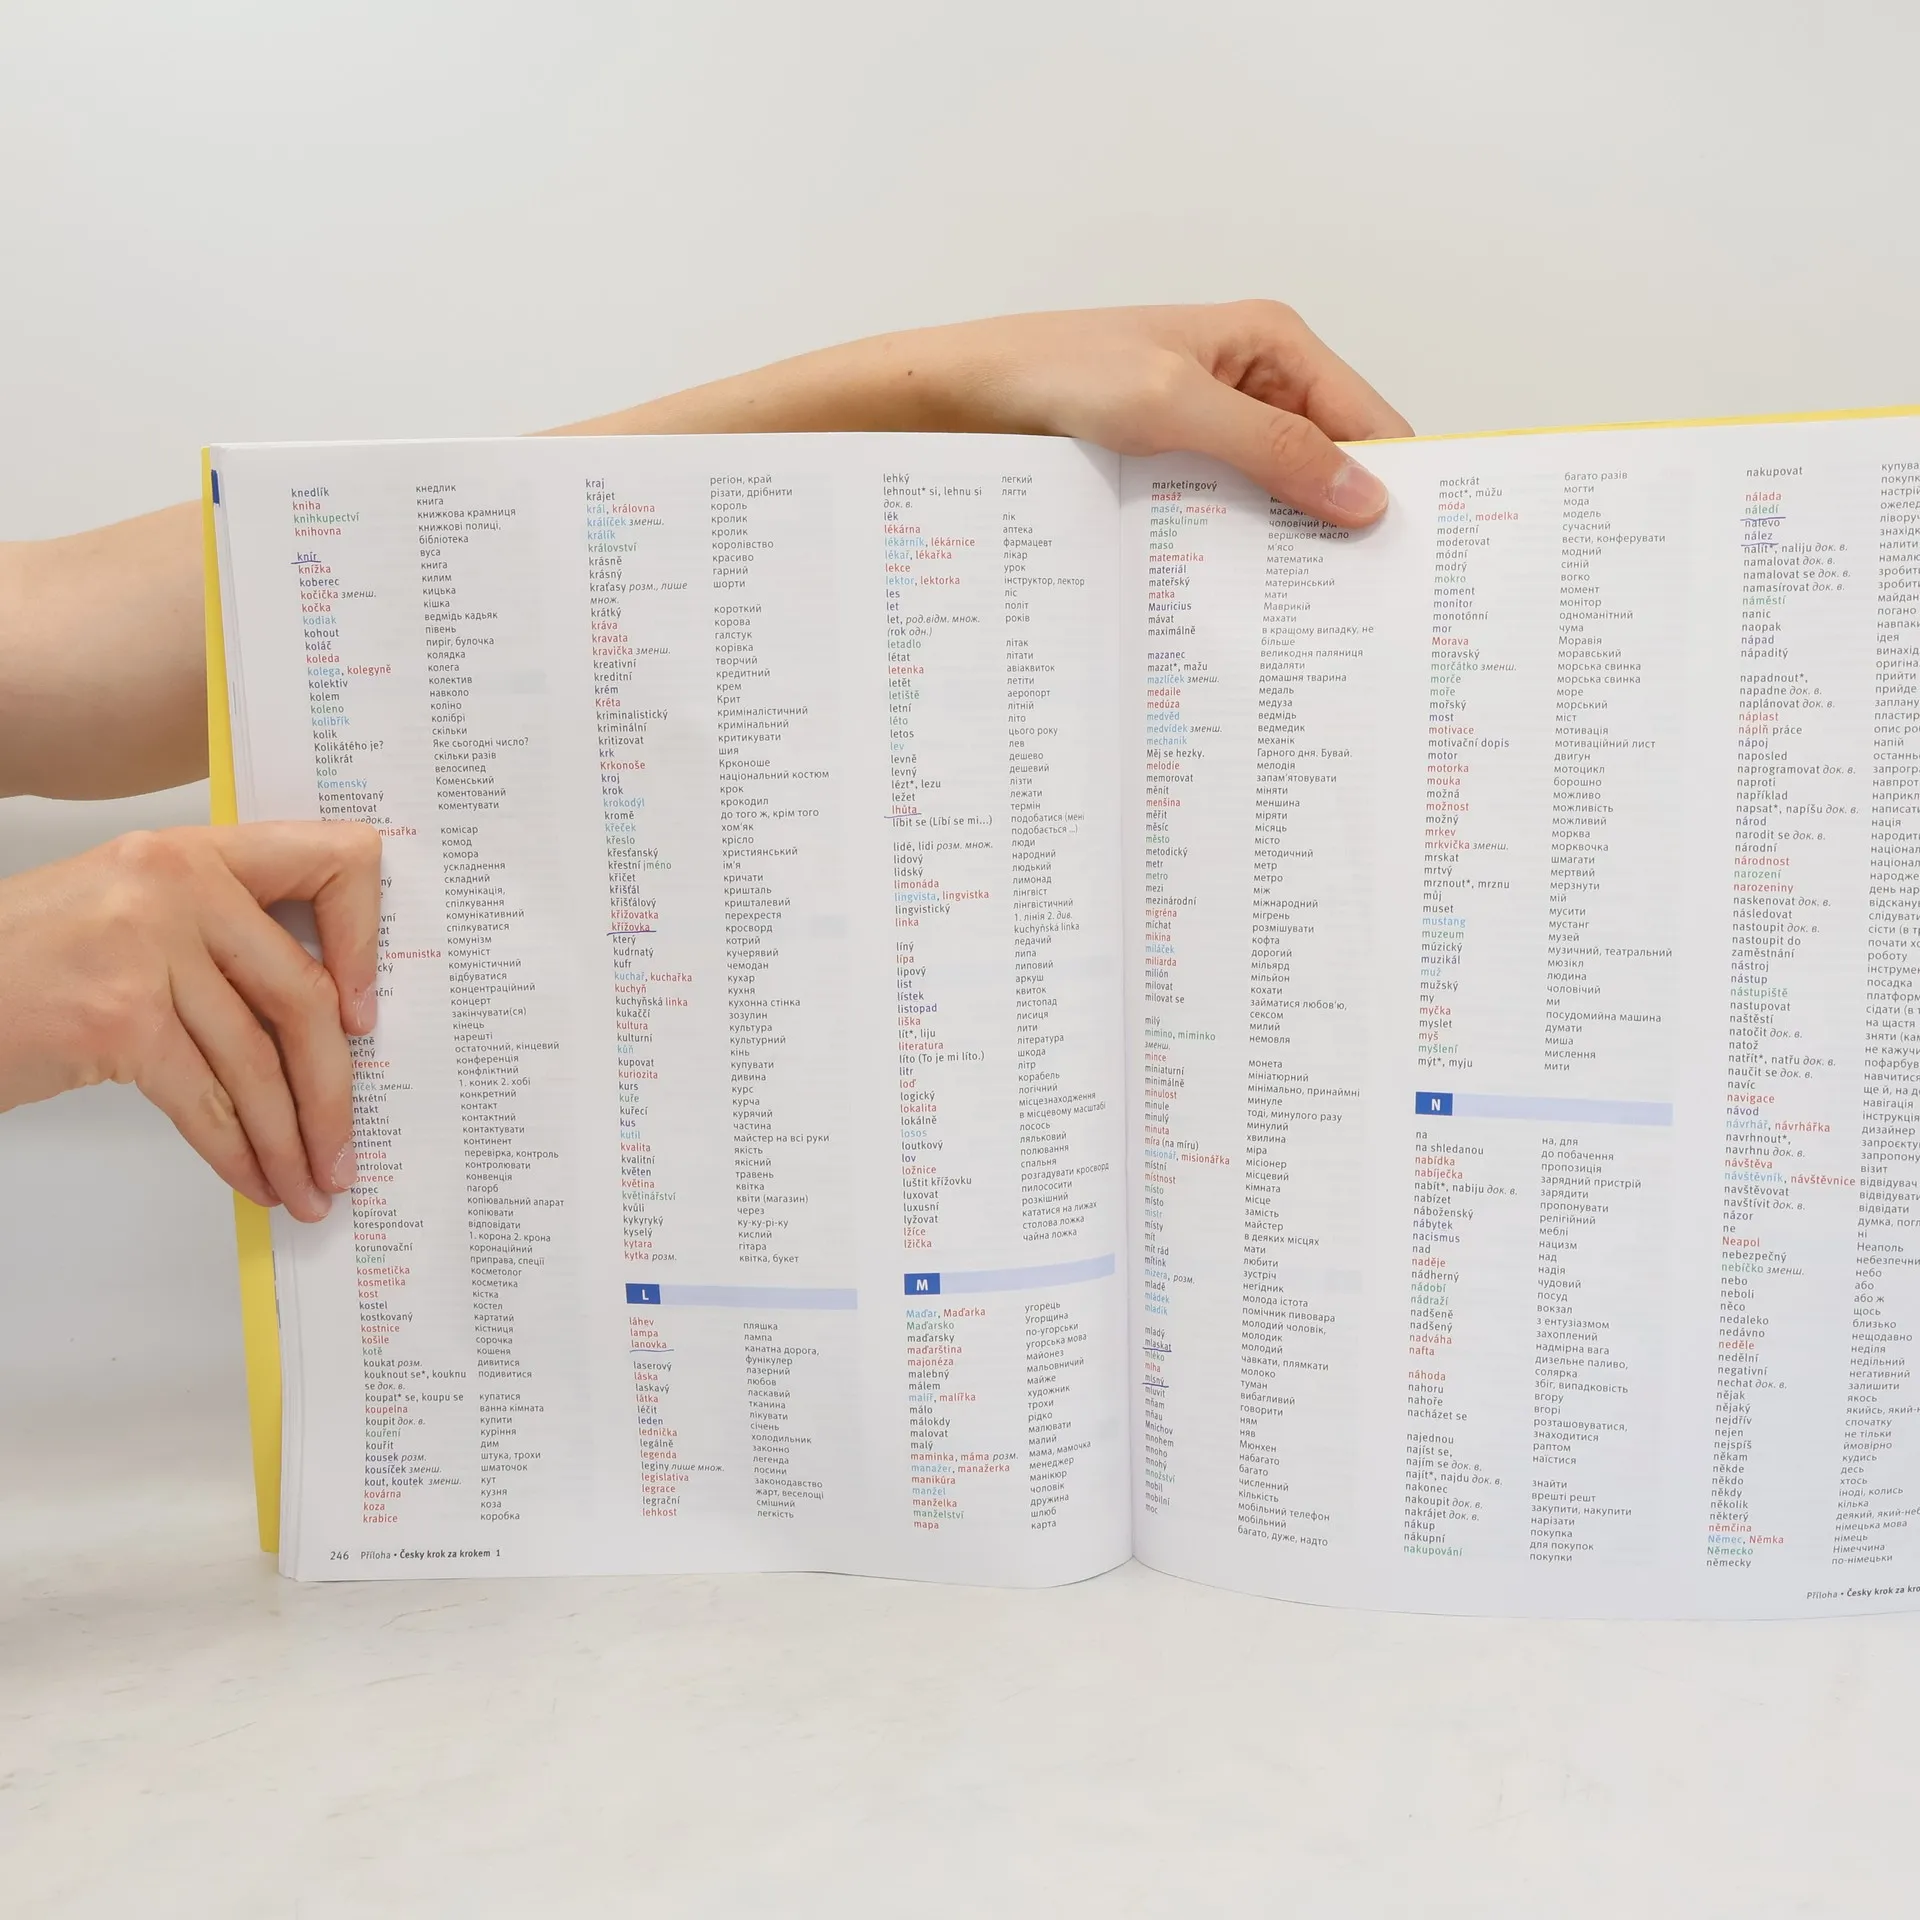 knedlík кнедлик
kniha книга
knihkupectví книжкова крамниця
knihovna книжкові полиці,
бібліотека
knír вуса
knížka книга
koberec килим
kočička зменш. кицька
kočka кішка
kodiak ведмідь кадьяк
kohout півень
koláč пиріг, булочка
koleda колядка
kolega, kolegyně колега
kolektiv колектив
kolem навколо
koleno коліно
kolibřík колібрі
kolik скільки
Kolikátého je? Яке сьогодні число?
kolikrát скільки разів
kolo велосипед
Komenský Коменський
komentovaný коментований
komentovat коментувати
misařka комісар
комод
комора
ускладнення
ný складний
комунікація,
спілкування
vní комунікативний
vat спілкуватися
us комунізм
, komunistka комуніст
cký комуністичний
відбуватися
ační концентраційний
концерт
закінчувати(ся)
кінець
ečně нарешті
ečný остаточний, кінцевий
ference конференція
nfliktní конфліктний
níček зменш. 1. коник 2. хобі
nkrétní конкретний
ntakt контакт
ontaktní контактний
ontaktovat контактувати
ontinent континент
ontrola перевірка, контроль
ontrolovat контролювати
onvence конвенція
kopec пагорб
kopírka копіювальний апарат
kopírovat копіювати
korespondovat відповідати
koruna 1. корона 2. крона
korunovační коронаційний
koření приправа, спеції
kosmetička косметолог
kosmetika косметика
kost кістка
kostel костел
kostkovaný картатий
kostnice кістниця
košile сорочка
kotě кошеня
koukat розм. дивитися
kouknout se*, kouknu подивитися
se док. в.
koupat* se, koupu se купатися
koupelna ванна кімната
koupit док. в. купити
kouření куріння
kouřit дим
kousek розм. штука, трохи
kousíček зменш. шматочок
kout, koutek зменш. кут
kovárna кузня
koza коза
krabice коробка
246 Příloha • Česky krok za krokem 1
kraj регіон, край
krájet різати, дрібнити
král, královna король
králíček зменш. кролик
králík кролик
království королівство
krásně красиво
krásný гарний
kraťasy розм., лише шорти
множ.
krátký короткий
kráva корова
kravata галстук
kravička зменш. корівка
kreativní творчий
kreditní кредитний
krém крем
Kréta Крит
kriminalistický криміналістичний
kriminální кримінальний
kritizovat критикувати
krk шия
Krkonoše Крконоше
kroj національний костюм
krok крок
krokodýl крокодил
kromě до того ж, крім того
křeček хом'як
křeslo крісло
křesťanský християнський
křestní jméno ім'я
křičet кричати
křišťál кришталь
křišťálový кришталевий
křižovatka перехрестя
křížovka кросворд
který котрий
kudrnatý кучерявий
kufr чемодан
kuchař, kuchařka кухар
kuchyň кухня
kuchyňská linka кухонна стінка
kukaččí зозулин
kultura культура
kulturní культурний
kůň кінь
kupovat купувати
kuriozita дивина
kurs курс
kuře курча
kuřecí курячий
kus частина
kutil майстер на всі руки
kvalita якість
kvalitní якісний
květen травень
květina квітка
květinářství квіти (магазин)
kvůli через
kykyryký ку-ку-рі-ку
kyselý кислий
kytara гітара
kytka розм. квітка, букет
L
láhev пляшка
lampa лампа
lanovka канатна дорога,
фунікулер
laserový лазерний
láska любов
laskavý ласкавий
látka тканина
léčit лікувати
leden січень
lednička холодильник
legálně законно
legenda легенда
legíny лише множ. лосини
legislativa законодавство
legrace жарт, веселощі
legrační смішний
lehkost легкість
lehký легкий
lehnout* si, lehnu si лягти
док. в.
lék лік
lékárna аптека
lékárník, lékárnice фармацевт
lékař, lékařka лікар
lekce урок
lektor, lektorka інструктор, лектор
les ліс
let політ
let, род.відм. множ. років
(rok одн.)
letadlo літак
létat літати
letenka авіаквиток
letět летіти
letiště аеропорт
letní літній
léto літо
letos цього року
lev лев
levně дешево
levný дешевий
lézt*, lezu лізти
ležet лежати
lhůta термін
líbit se (Líbí se mi...) подобатися (мені
подобається ...)
lidé, lidi розм. множ. люди
lidový народний
lidský людький
limonáda лимонад
lingvista, lingvistka лінгвіст
lingvistický лінгвістичний
linka 1. лінія 2. див.
kuchyňská linka
líný ледачий
lípa липа
lipový липовий
list аркуш
lístek квиток
listopad листопад
liška лисиця
lít*, liju лити
literatura література
líto (To je mi líto.) шкода
litr літр
loď корабель
logický логічний
lokalita місцезнаходження
lokálně в місцевому масштабі
losos лосось
loutkový ляльковий
lov полювання
ložnice спальня
luštit křížovku розгадувати кросворд
luxovat пилососити
luxusní розкішний
lyžovat кататися на лижах
lžíce столова ложка
lžička чайна ложка
M
Maďar, Maďarka угорець
Maďarsko Угорщина
maďarsky по-угорськи
maďarština угорська мова
majonéza майонез
malebný мальовничий
málem майже
malíř, malířka художник
málo трохи
málokdy рідко
malovat малювати
malý малий
maminka, máma розм. мама, мамочка
manažer, manažerka менеджер
manikúra манікюр
manžel чоловік
manželka дружина
manželství шлюб
mapa карта
marketingový
masáž
masér, masérka масаж
maskulinum чоловічий рід
máslo вершкове масло
maso м'ясо
matematika математика
materiál матеріал
mateřský материнський
matka мати
Mauricius Маврикій
mávat махати
maximálně в кращому випадку, не
більше
mazanec великодня паляниця
mazat*, mažu видаляти
mazlíček зменш. домашня тварина
medaile медаль
medúza медуза
medvěd ведмідь
medvídek зменш. ведмедик
mechanik механік
Měj se hezky. Гарного дня. Бувай.
melodie мелодія
memorovat запам'ятовувати
měnit міняти
menšina меншина
měřit міряти
měsíc місяць
město місто
metodický методичний
metr метр
metro метро
mezi між
mezinárodní міжнародний
migréna мігрень
míchat розмішувати
mikina кофта
miláček дорогий
miliarda мільярд
milión мільйон
milovat кохати
milovat se займатися любов'ю,
сексом
milý милий
mimino, miminko немовля
зменш.
mince монета
miniaturní мініатюрний
minimálně мінімально, принаймні
minulost минуле
minule тоді, минулого разу
minulý минулий
minuta хвилина
míra (na míru) міра
misionář, misionářka місіонер
místní місцевий
místnost кімната
místo місце
místo замість
mistr майстер
místy в деяких місцях
mít мати
mít rád любити
mítink зустріч
mizera, розм. негідник
mládě молода істота
mládek помічник пивовара
mladík молодий чоловік,
молодик
mladý молодий
mlaskat чавкати, плямкати
mléko молоко
mlha туман
mlsný вибагливий
mluvit говорити
mňam ням
mňau няв
Mnichov Мюнхен
mnohem набагато
mnoho багато
mnohý численний
množství кількість
mobil мобільний телефон
mobilní мобільний
moc багато, дуже, надто
mockrát багато разів
moct*, můžu могти
móda мода
model, modelka модель
moderní сучасний
moderovat вести, конферувати
módní модний
modrý синій
mokro вогко
moment момент
monitor монітор
monotónní одноманітний
mor чума
Morava Моравія
moravský моравський
morčátko зменш. морська свинка
morče морська свинка
moře море
mořský морський
most міст
motivace мотивація
motivační dopis мотиваційний лист
motor двигун
motorka мотоцикл
mouka борошно
možná можливо
možnost можливість
možný можливий
mrkev морква
mrkvička зменш. морквочка
mrskat шмагати
mrtvý мертвий
mrznout*, mrznu мерзнути
můj мій
muset мусити
mustang мустанг
muzeum музей
múzický музичний, театральний
muzikál мюзікл
muž людина
mužský чоловічий
my ми
myčka посудомийна машина
myslet думати
myš миша
myšlení мислення
mýt*, myju мити
N
na на, для
na shledanou до побачення
nabídka пропозиція
nabíječka зарядний пристрій
nabít*, nabiju док. в. зарядити
nabízet пропонувати
náboženský релігійний
nábytek меблі
nacismus нацизм
nad над
naděje надія
nádherný чудовий
nádobí посуд
nádraží вокзал
nadšeně з ентузіазмом
nadšený захоплений
nadváha надмірна вага
nafta дизельне паливо,
солярка
náhoda збіг, випадковість
nahoru вгору
nahoře вгорі
nacházet se розташовуватися,
знаходитися
najednou раптом
najíst se, наїстися
najím se док. в.
najít*, najdu док. в. знайти
nakonec врешті решт
nakoupit док. в. закупити, накупити
nakrájet док. в. нарізати
nákup покупка
nákupní для покупок
nakupování покупки
nakupovat
nálada
náledí
nalevo
nález
nalít*, naliju док. в.
namalovat док. в.
namalovat se док. в.
namasírovat док. в.
náměstí
nanic
naopak
nápad ідея
nápaditý
napadnout*,
napadne док. в.
naplánovat док. в.
náplast
náplň práce
nápoj напій
naposled
naprogramovat док. в.
naproti
například
napsat*, napíšu док. в.
národ нація
narodit se док. в.
národní
národnost
narození
narozeniny
naskenovat док. в.
následovat
nastoupit док. в.
nastoupit do
zaměstnání роботу
nástroj
nástup посадка
nástupiště
nastupovat
naštěstí на щастя
natočit док. в.
natož
natřít*, natřu док. в.
naučit se док. в.
navíc
navigace навігація
návod
návrhář, návrhářka дизайнер
navrhnout*,
navrhnu док. в.
návštěva візит
návštěvník, návštěvnice відвідувач
navštěvovat
navštívit док. в. відвідати
názor
ne ні
Neapol Неаполь
nebezpečný
nebíčko зменш. небо
nebo або
neboli або ж
něco щось
nedaleko близько
nedávno нещодавно
neděle неділя
nedělní недільний
negativní негативний
nechat док. в. залишити
nějak якось
nějaký
nejdřív спочатку
nejen не тільки
nejspíš ймовірно
někam кудись
někde десь
někdo хтось
někdy іноді, колись
několik кілька
některý
němčina німецька мова
Němec, Němka німець
Německo Німеччина
německy по-німецьки
Příloha • Česky krok za